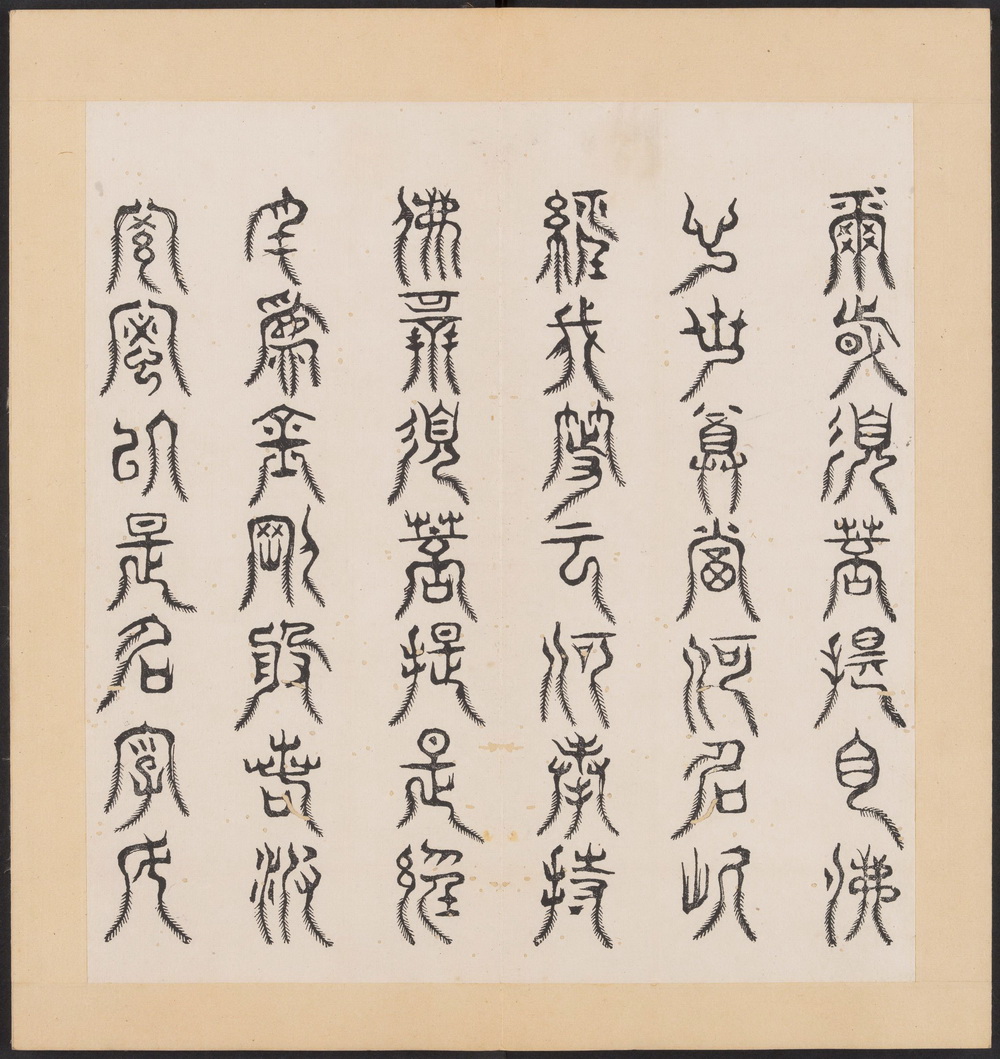 爾時須菩提白佛
言世尊當何名此
經我等云何奉持
佛告須菩提是經
名為金剛般若波
羅蜜以是名字汝